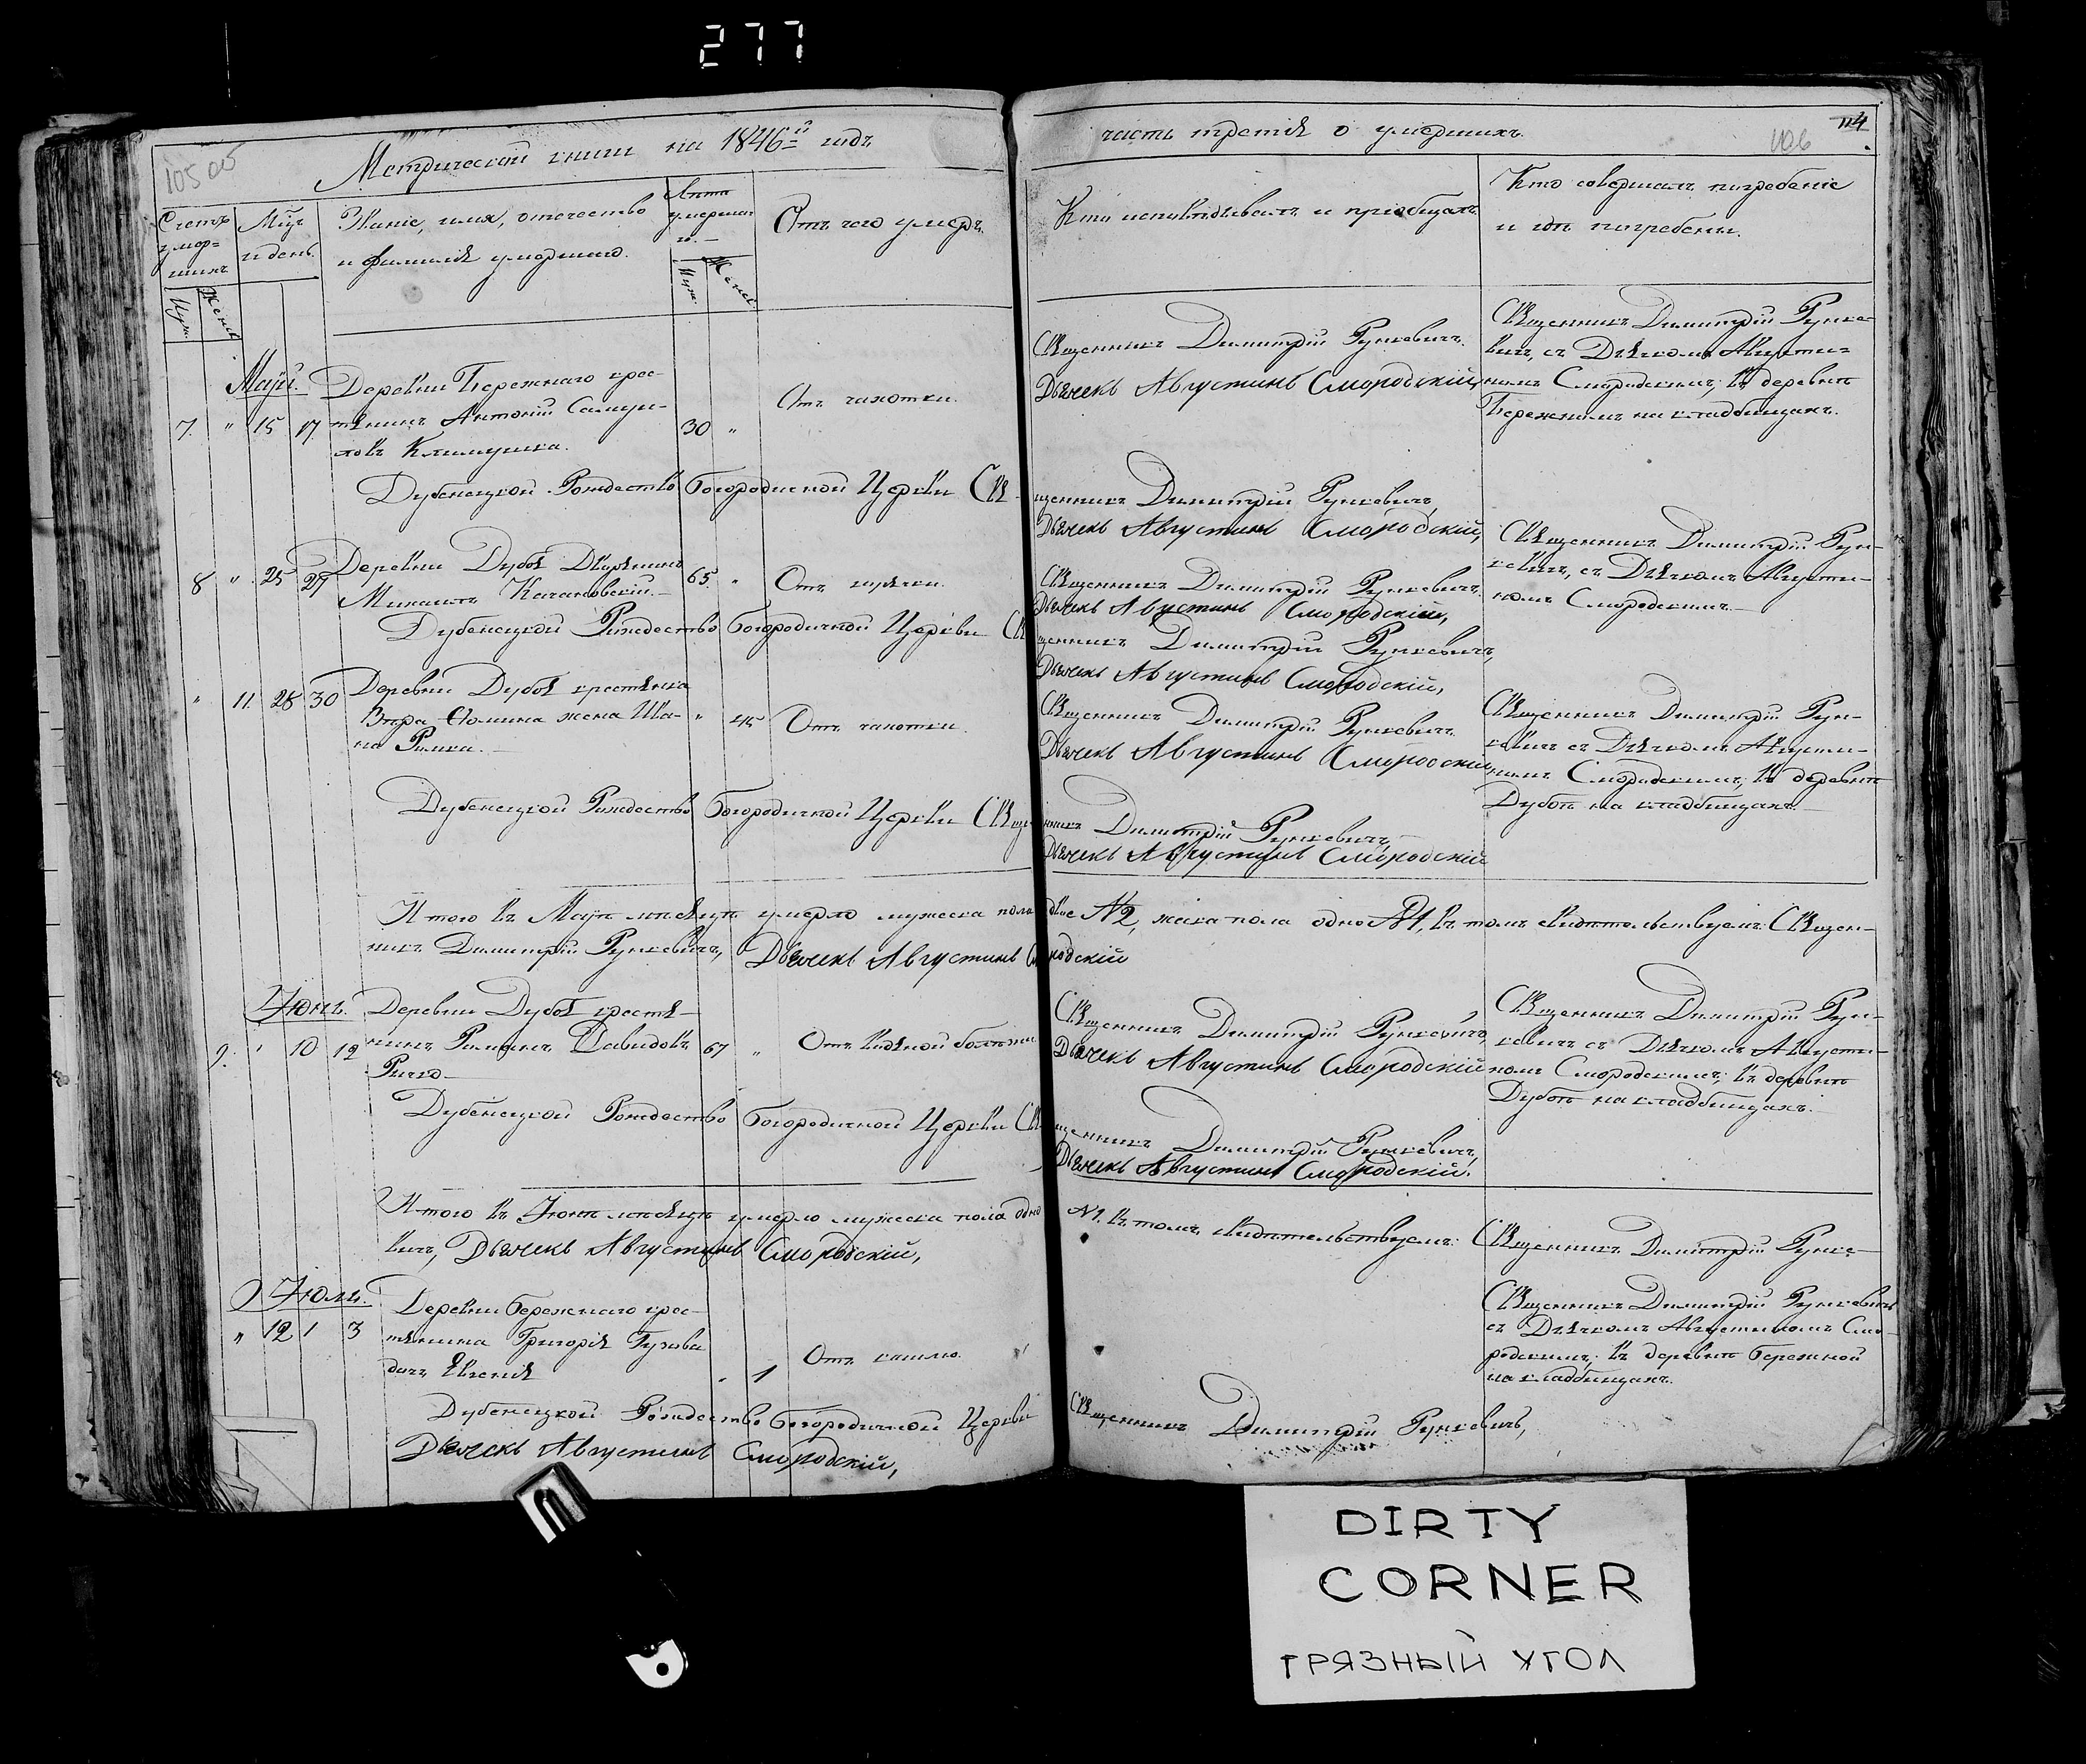 277
Метрической книги на 1846й годъ
часть третія о умершихъ.
105 об
106
114
Счетъ умершихъ
Муж.
Женск.
Мѣц. и день.
Званіе, имя, отечество
и фамилія умершаго.
Лѣта умершаго.
Муж.
Женск.
Отъ чего умеръ.
Кто исповѣдывалъ и пріобщалъ.
Кто совершалъ погребеніе
и гдѣ погребены.
Маій.
7. " 15 17
Деревни Бережнаго крес-
тянинъ Антоній Самуи-
ловъ Климушка.
30 "
Отъ чахотки.
Священникъ Димитрій Рункевичъ.
Дьячекъ Августинъ Смородскій,
Священникъ Димитрій Рунке-
вичъ, съ Дьячкомъ Августи-
номъ Смородскимъ; въ деревнѣ
Бережномъ на кладбищахъ.
Дубенецкой Рождество Богородичной Церкви Священникъ Димитрій Рункевичъ,
Дьячекъ Августинъ Смородскій,
8 " 25 27
Деревни Дубоя Дворянинъ
Михаилъ Качановскій.
65. "
Отъ горячки.
Священникъ Димитрій Рункевичъ.
Дьячекъ Августинъ Смородскій,
Священникъ Димитрій Рун-
кевичъ, съ Дьячкомъ Августи-
номъ Смородскимъ.
Дубенецкой Рождество Богородичной Церкви Священникъ Димитрій Рункевичъ,
Дьячекъ Августинъ Смородскій,
" 11. 28 30
Деревни Дубоя крестянка
Вѣра Ѳомина жена Ива-
на
" 45
Отъ чахотки.
Священникъ Димитрій Рункевичъ.
Дьячекъ Августинъ Смородскій
Священникъ Димитрій Рун-
кевичъ съ Дьячкомъ Августи-
номъ Смородскимъ; въ деревнѣ
Дубоѣ на кладбищахъ.
Дубенецкой Рождество Богородичной Церкви Священникъ Димитрій Рункевичъ,
Дьячекъ Августинъ Смородскій
Итого въ Маѣ мѣсяцѣ умерло мужеска пола двое №2, женска пола одно №1, въ томъ свидѣтельствуемъ: Священ-
никъ Димитрій Рункевичъ, Дьячекъ Августинъ Смородскій
Іюнь.
9. " 10 12
Деревни Дубоя крестя-
нинъ Романъ Давидовъ
67 "
Священникъ Димитрій Рункевичъ
Дьячекъ Августинъ Смородскій
Священникъ Димитрій Рун-
кевичъ съ Дьячкомъ Августи-
номъ Смородскимъ; въ деревнѣ
Дубоѣ на кладбищахъ.
Дубенецкой Рождество Богородичной Церкви Священникъ Димитрій Рункевичъ,
Дьячекъ Августинъ Смородскій.
Итого въ Іюнѣ мѣсяцѣ умерло мужеска пола одно №1. Въ томъ свидѣтельствуемъ: Священникъ Димитрій Рунке-
вичъ, Дьячекъ Августинъ Смородскій,
Іюль.
" 12 1 3
Деревни Бережнаго крес-
тянина Григорія
дочь Евгенія
" 1
Отъ кашлю.
Священникъ Димитрій Рункевичъ
съ Дьячкомъ Августиномъ Смо-
родскимъ; въ деревнѣ Бережной
на кладбищахъ.
Дубенецкой Рождество Богородичной Церкви Священникъ Димитрій Рункевичъ,
Дьячекъ Августинъ Смородскій,
DIRTY
CORNER
ГРЯЗНЫЙ УГОЛ